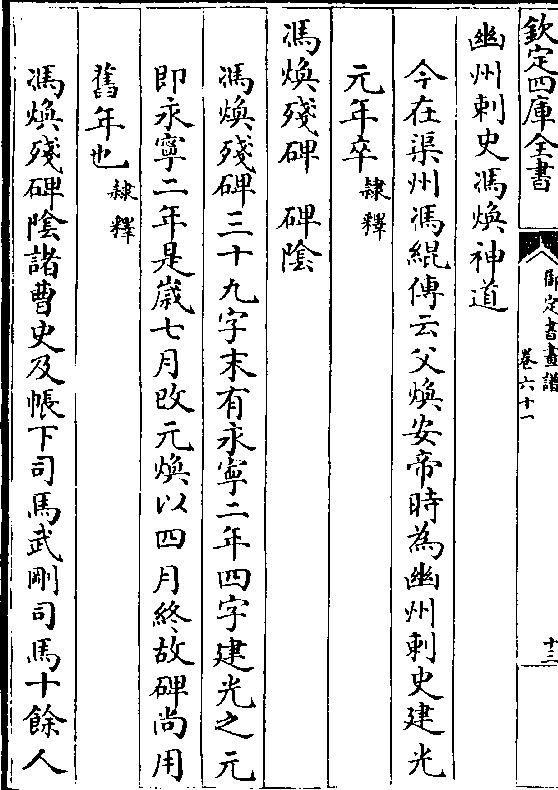 欽定四庫全書
御定書畫譜
卷六十一
十三
幽州刺史馮煥神道
今在渠州馮緄傳云父煥安帝時為幽州刺史建光
元年卒隸釋
馮煥殘碑　碑陰
馮煥殘碑三十九字末有永寧二年四字建光之元
即永寧二年是歲七月改元煥以四月終故碑尚用
舊年也隸釋
馮煥殘碑陰諸曹史及帳下司馬武剛司馬十餘人